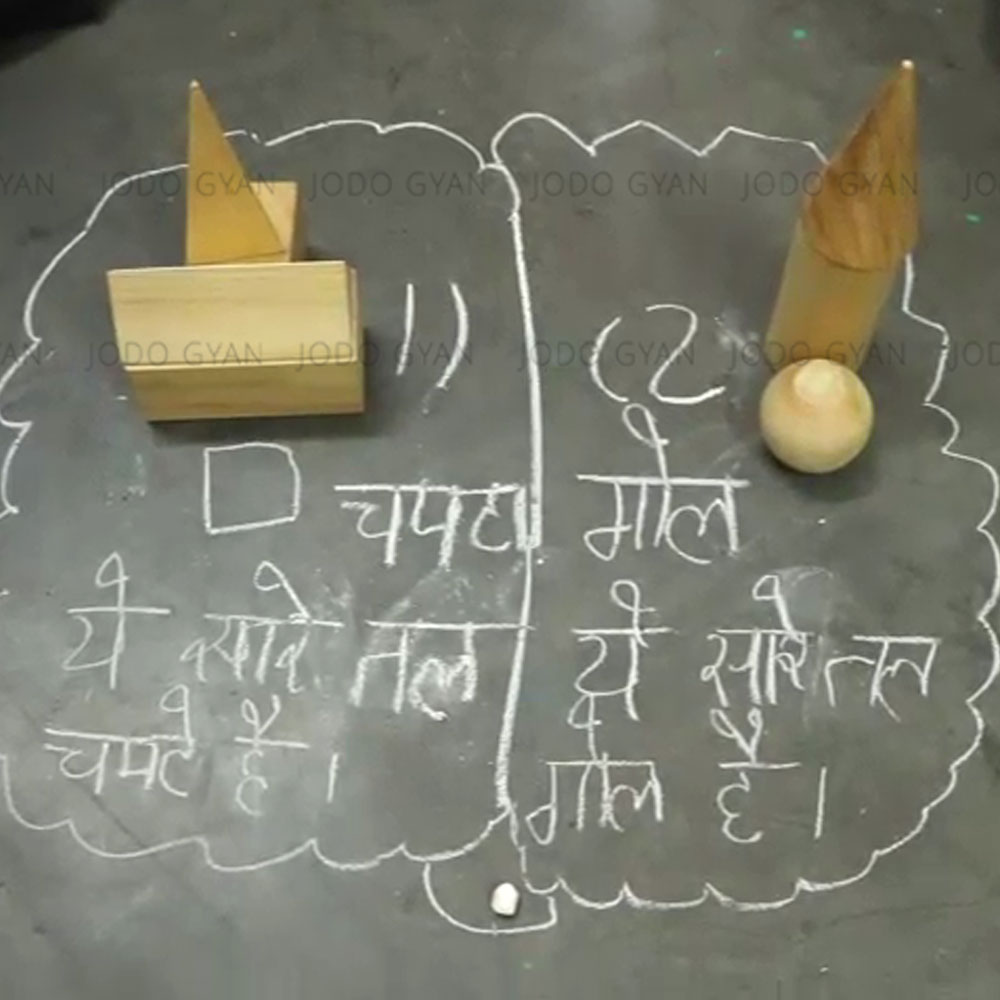 JODO GYAN JODO GYAN JODO GYAN JODO GYAN
JODO GYAN JODO GYAN JODO GYAN JODO GYAN
1)
चपटा
ये सारे तल
चपटे है।
(2
गोल
ये सारे तल
गोल है।